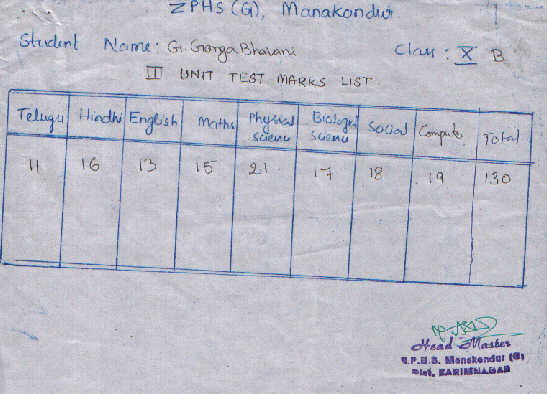 ZPHS (G), Manakondur
Student Name: G. Ganga Bhavani Class: X B
II UNIT TEST MARKS LIST
Telugu Hindhi English Maths Physical Sciene Biological Sciene Social Compute Total
11 16 13 15 21 17 18 19 130
Head Master
Z.P.H.S. Manakondur (G)
Dist. KARIMNAGAR